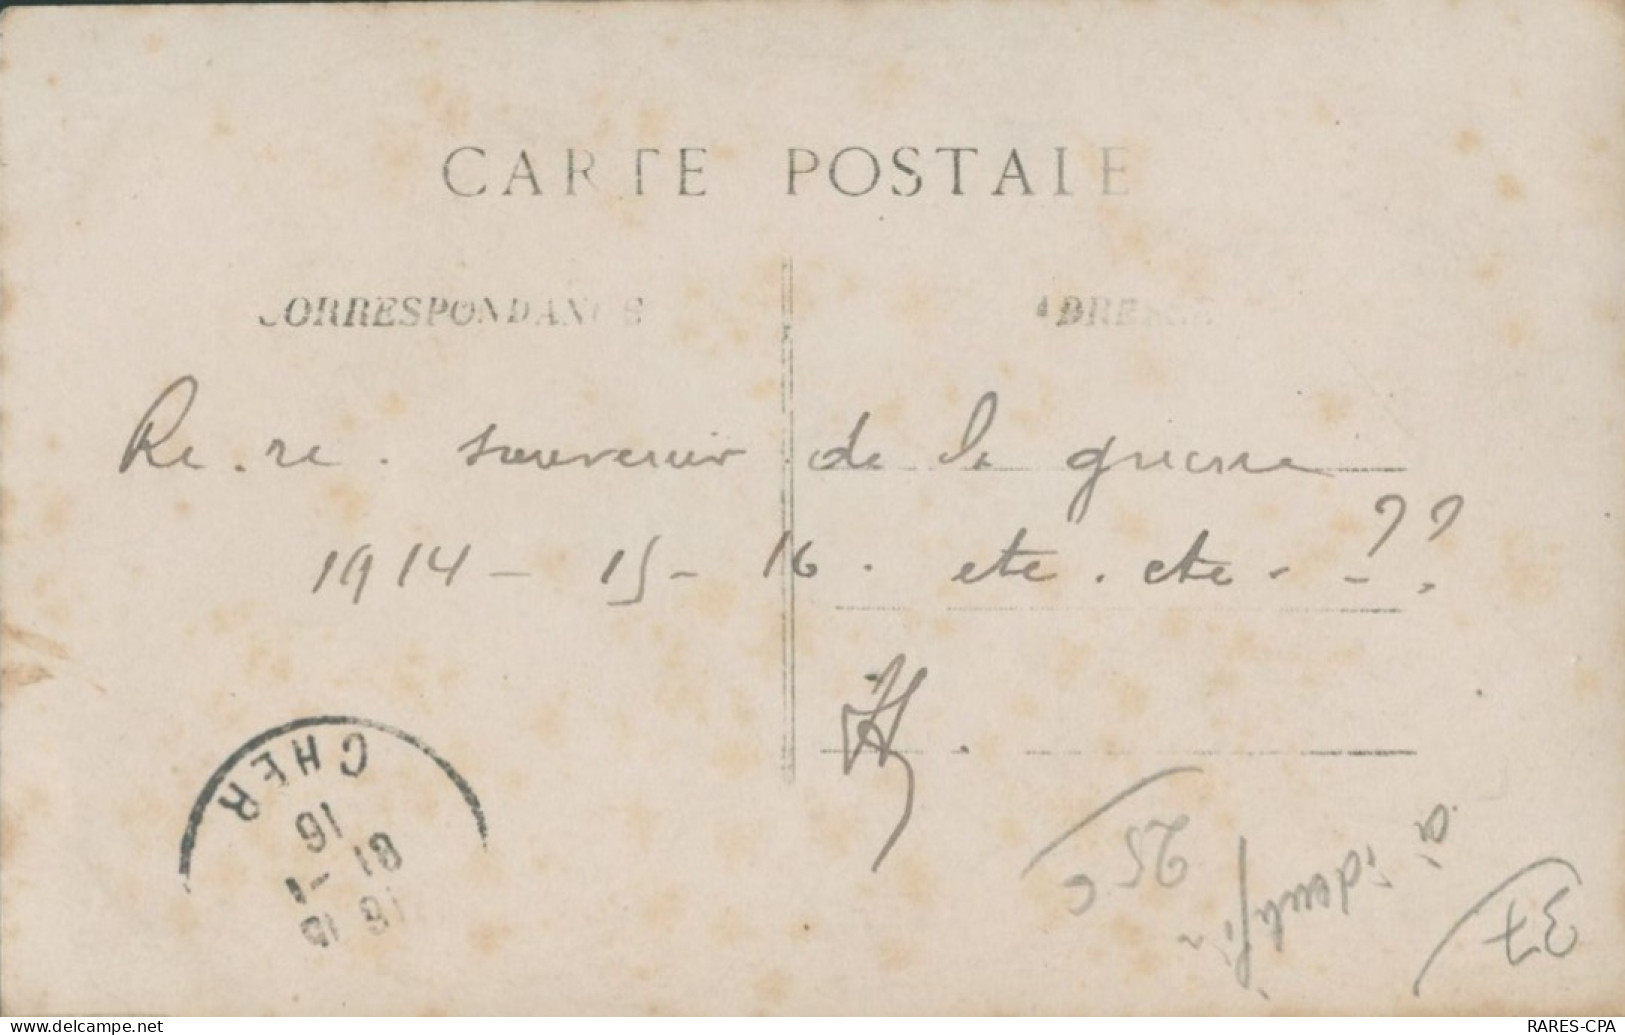 CARTE POSTALE
CORRESPONDANCE
ADRESSE
Re.re. souvenir de la guerre
1914 - 15 - 16. etc. etc - - ??
CHER
16
à identifier
25 €
37
RARES-CPA